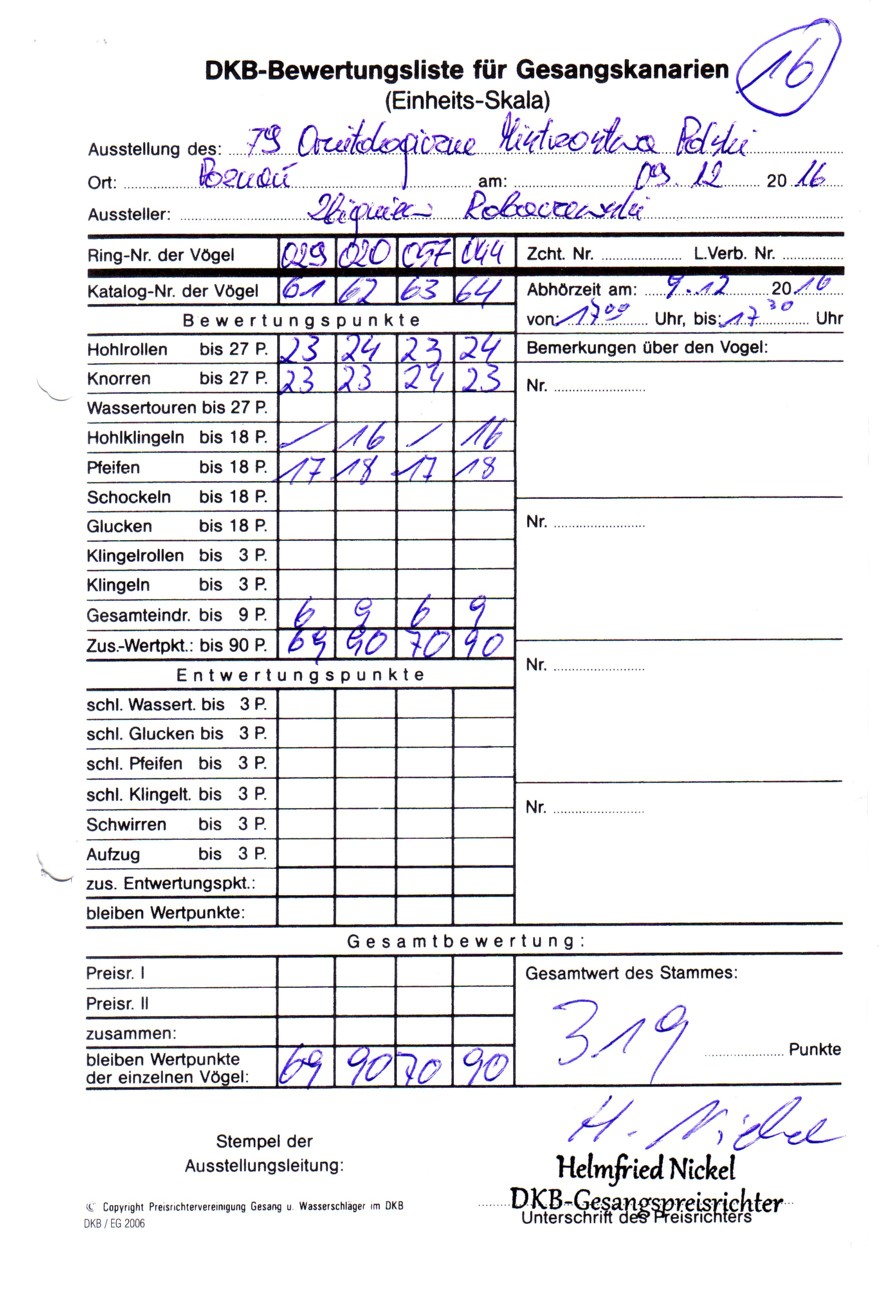 DKB-Bewertungsliste für Gesangskanarien 16
(Einheits-Skala)
Ausstellung des: 79 Ornitologiczne Mistrzostwa Polski
Ort: Poznań am: 09.12 2016
Aussteller: Zbigniew
Ring-Nr. der Vögel 029 020 057 044 Zcht. Nr. L.Verb. Nr.
Katalog-Nr. der Vögel 61 62 63 64 Abhörzeit am: 9.12 2016
Bewertungspunkte von: 17 00 Uhr, bis: 17 30 Uhr
Hohlrollen bis 27 P. 23 24 23 24 Bemerkungen über den Vogel:
Knorren bis 27 P. 23 23 24 23 Nr.
Wassertouren bis 27 P.
Hohlklingeln bis 18 P. / 16 / 16
Pfeifen bis 18 P. 17 18 17 18
Schockeln bis 18 P.
Glucken bis 18 P. Nr.
Klingelrollen bis 3 P.
Klingeln bis 3 P.
Gesamteindr. bis 9 P. 6 9 6 9
Zus.-Wertpkt.: bis 90 P. 69 90 70 90
Entwertungspunkte Nr.
schl. Wassert. bis 3 P.
schl. Glucken bis 3 P.
schl. Pfeifen bis 3 P.
schl. Klingelt. bis 3 P. Nr.
Schwirren bis 3 P.
Aufzug bis 3 P.
zus. Entwertungspkt.:
bleiben Wertpunkte:
Gesamtbewertung:
Preisr. I Gesamtwert des Stammes:
Preisr. II
zusammen: 319 Punkte
bleiben Wertpunkte
der einzelnen Vögel: 69 90 70 90
H. Nickel
Stempel der
Ausstellungsleitung:
Helmfried Nickel
DKB-Gesangspreisrichter
Unterschrift des Preisrichters
© Copyright Preisrichtervereinigung Gesang u. Wasserschläger im DKB
DKB / EG 2006